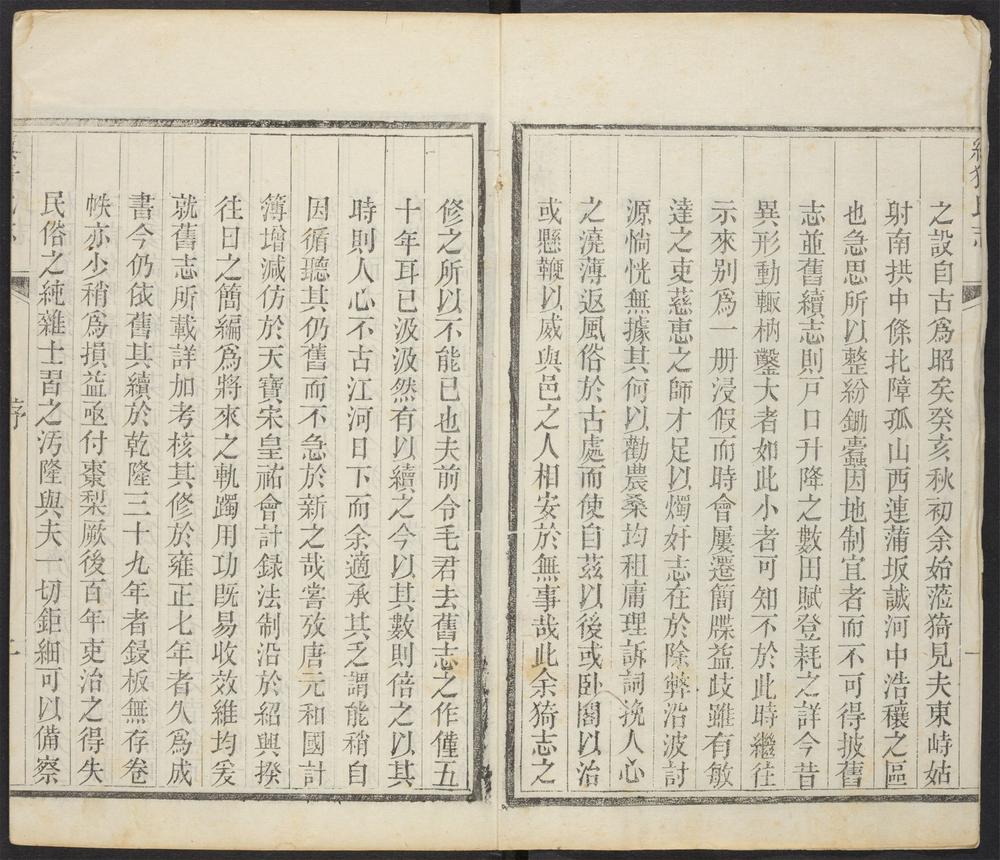 之設自古為昭矣癸亥秋初余始蒞猗見夫東峙姑
射南拱中條北障孤山西連蒲坂誠河中浩穰之區
也急思所以整紛鋤蠹因地制宜者而不可得披舊
志並舊續志則戶口升降之數田賦登耗之詳今昔
異形動輒枘鑿大者如此小者可知不於此時繼往
示來别為一册浸假而時會屢遷簡牒益歧雖有敏
達之吏慈惠之師才足以燭奸志在於除弊沿波討
源惝恍無據其何以勸農桑均租庸理訴詞挽人心
之澆薄返風俗於古處而使自茲以後或卧閣以治
或懸鞭以威與邑之人相安於無事哉此余猗志之
修之所以不能已也夫前令毛君去舊志之作僅五
十年耳已汲汲然有以續之今以其數則倍之以其
時則人心不古江河日下而余適承其乏謂能稍自
因循聽其仍舊而不急於新之哉嘗攷唐元和國計
簿增減仿於天寶宋皇祐會計録法制沿於紹興揆
往日之簡編為將來之軌躅用功旣易收效維均爰
就舊志所載詳加考核其修於雍正七年者久為成
書今仍依舊其續於乾隆三十九年者鋟板無存卷
帙亦少稍為損益亟付棗梨厥後百年吏治之得失
民俗之純雜士習之汚隆與夫一切鉅細可以備察
序